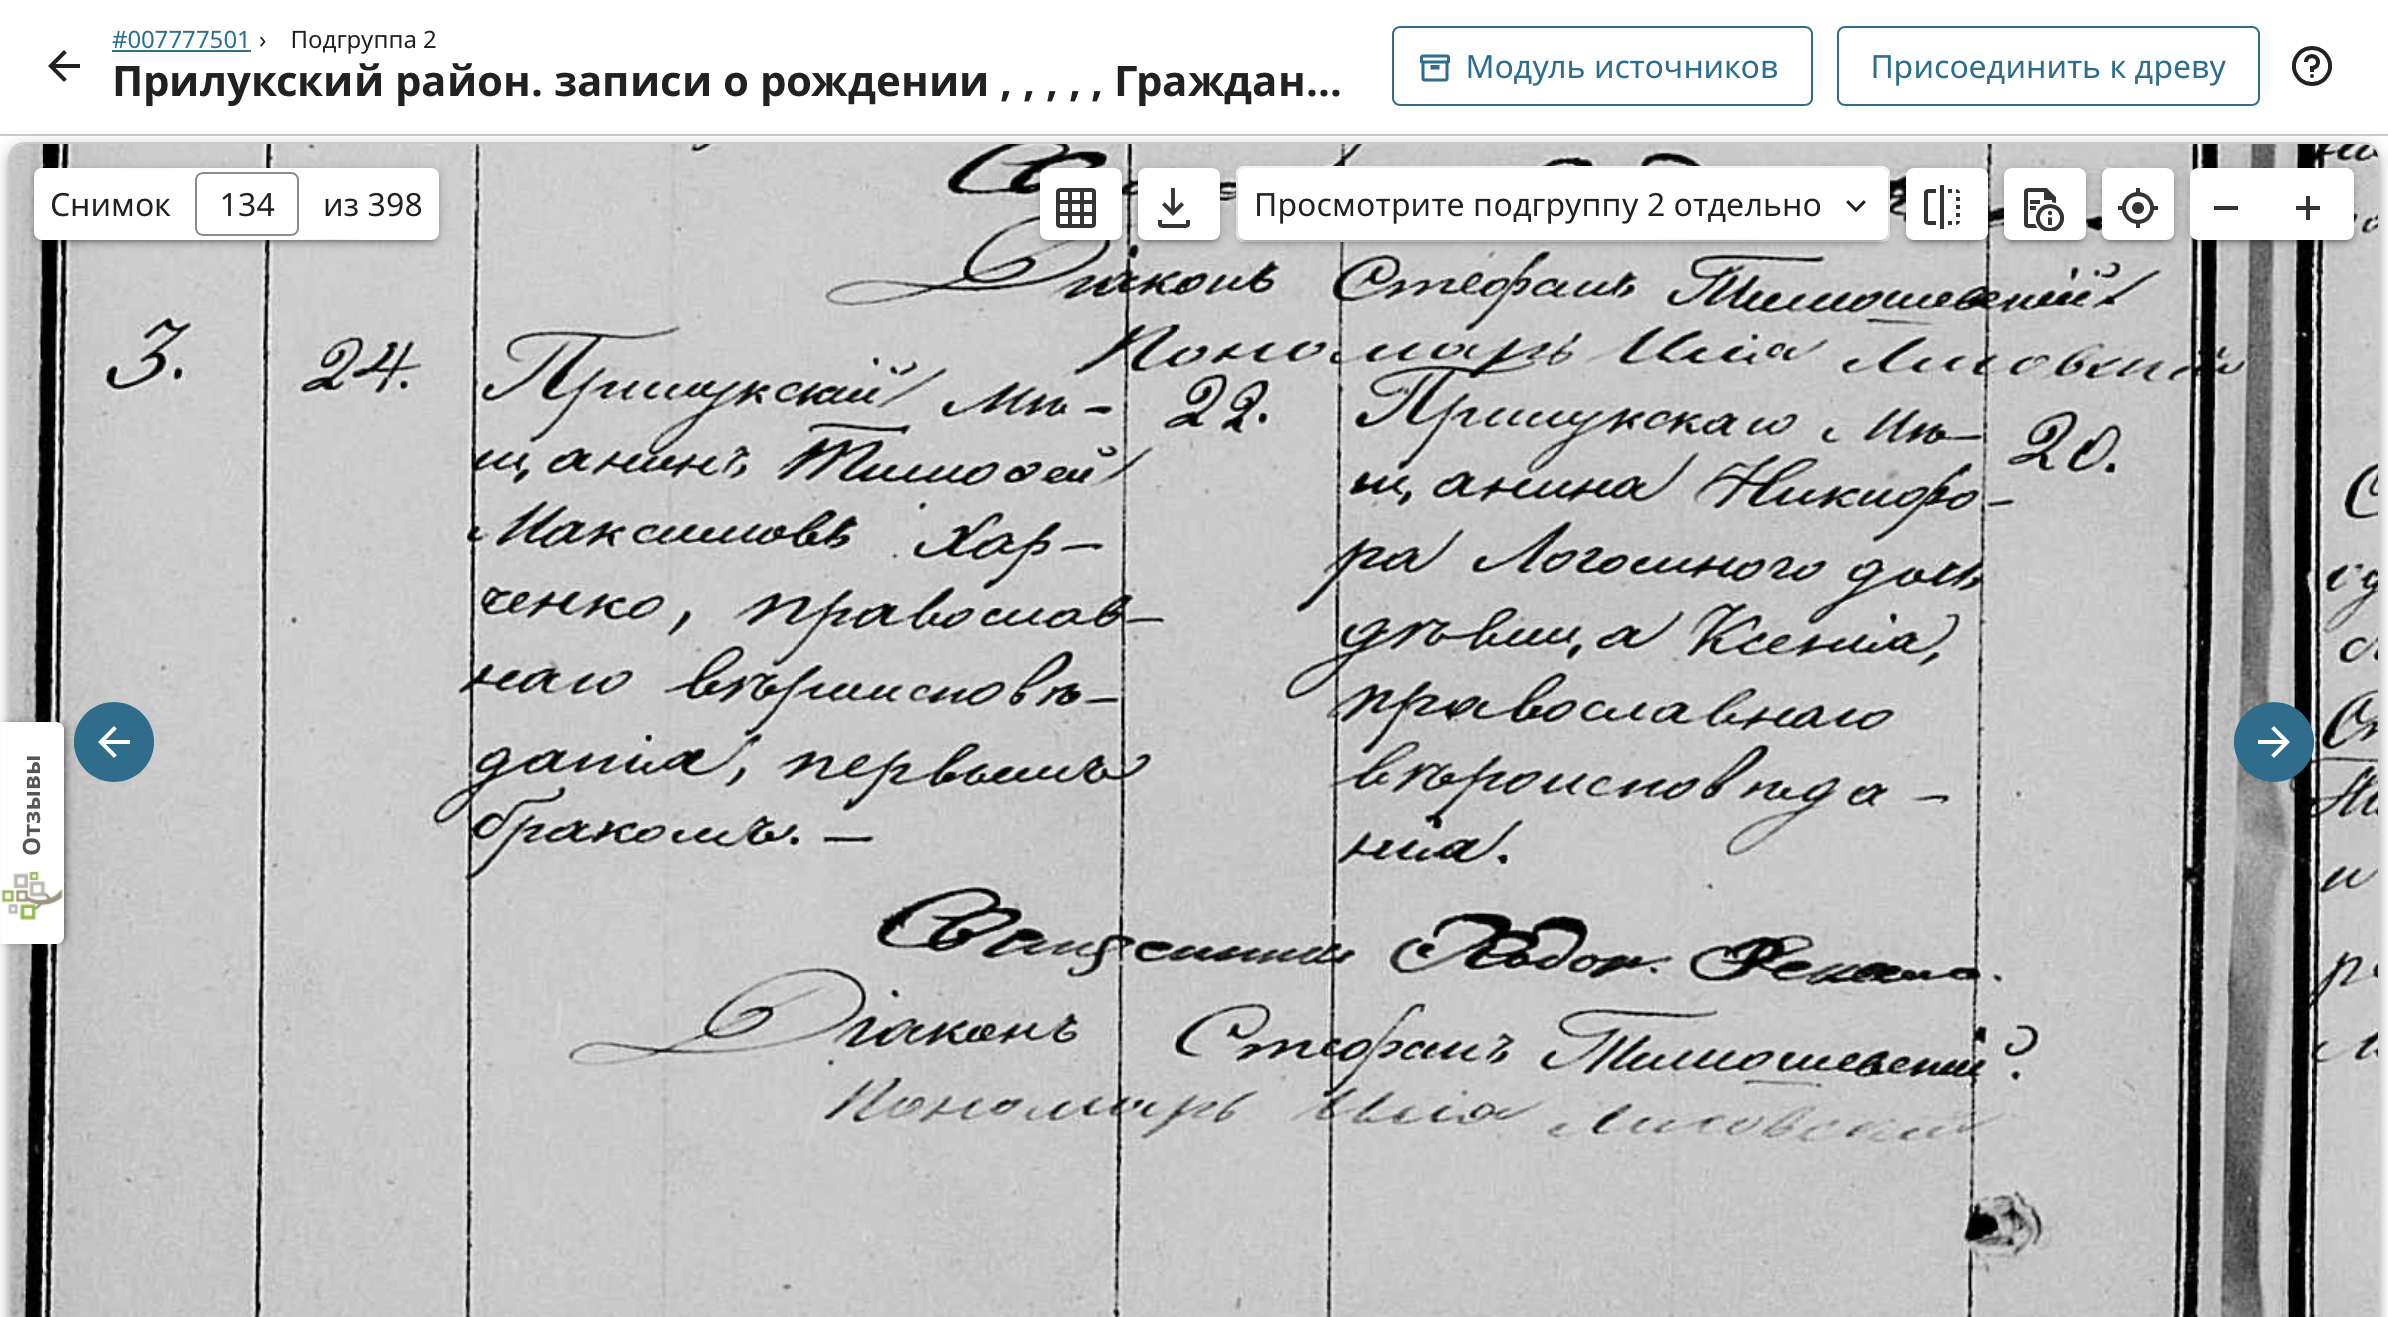 #007777501 › Подгруппа 2
Прилукский район. записи о рождении , , , , , Граждан...
Модуль источников
Присоединить к древу
Снимок 134 из 398
Просмотрите подгруппу 2 отдельно
Отзывы
Діаконъ Стефанъ Тимошевскій
Пономарь Илія Лисовскій
3.
24.
Прилукскій мѣ-
щанинъ Тимофей
Максимовъ Хар-
ченко, православ-
наго вѣроисповѣ-
данія, первымъ
бракомъ. —
22.
Прилукскаго мѣ-
щанина Никифо-
ра Логошного дочь
дѣвица Ксенія,
православнаго
вѣроисповѣда -
нія.
20.
Священникъ
Діаконъ Стефанъ Тимошевскій.
Пономарь Илія Лисовскій